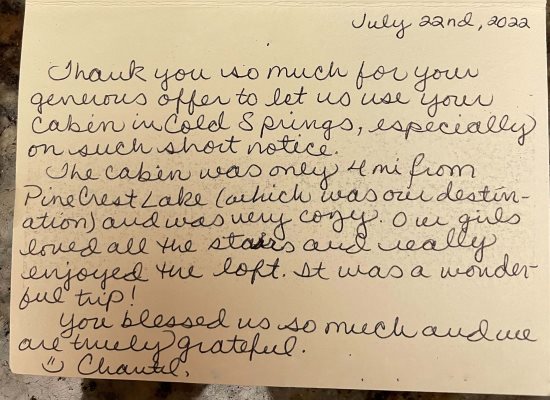 July 22nd, 2022
Thank you so much for your
generous offer to let us use your
cabin in Cold Springs, especially
on such short notice.
The cabin was only 4 mi from
PineCrest Lake (which was our destin-
ation) and was very cozy. Our girls
loved all the stairs and really
enjoyed the loft. It was a wonder-
ful trip!
You blessed us so much and we
are truely grateful.
☺ Chantel,